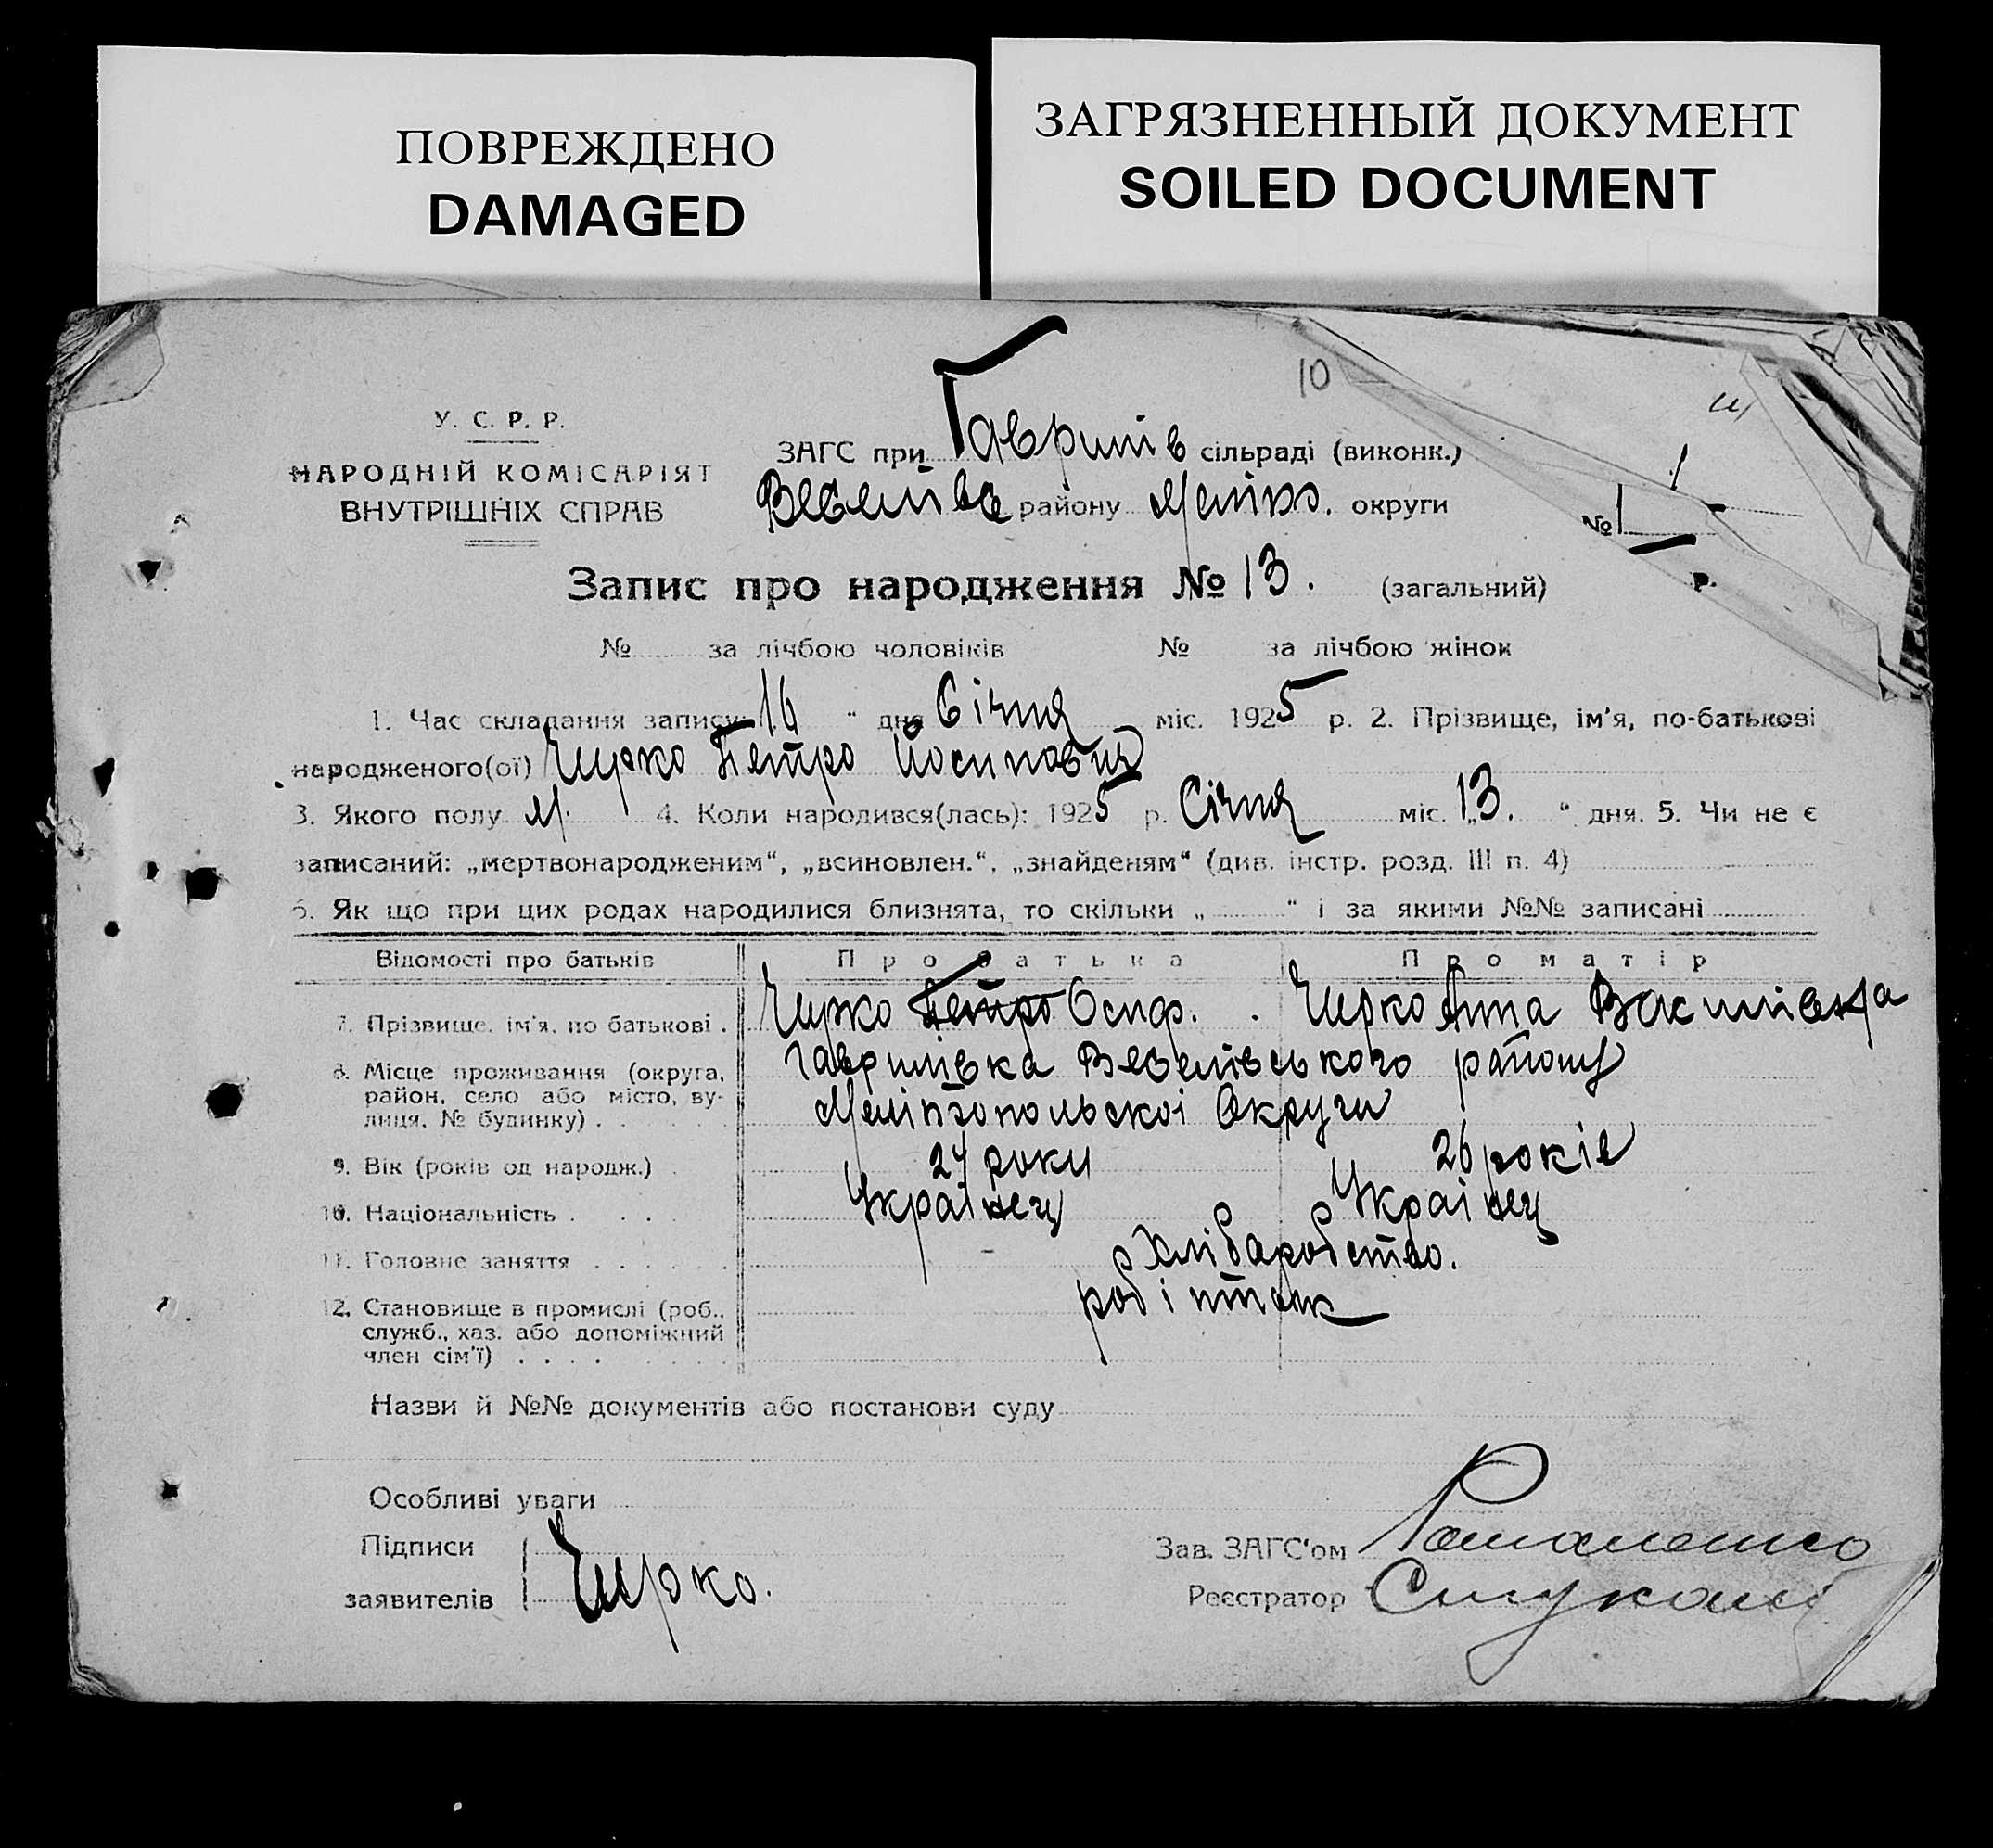 ПОВРЕЖДЕНО
DAMAGED
ЗАГРЯЗНЕННЫЙ ДОКУМЕНТ
SOILED DOCUMENT
10
У. С. Р. Р.
НАРОДНІЙ КОМІСАРІЯТ
ВНУТРІШНІХ СПРАВ
ЗАГС при Гаврилів сільраді (виконк.)
району Меліто. округи
№ 1
р.
Запис про народження № 13. (загальний)
№ за лічбою чоловіків № за лічбою жінок
1. Час складання запису 16 " дня Січня міс. 1925 р. 2. Прізвище, ім'я, по-батькові
народженого(ої) Чирко Петро Йосипович
3. Якого полу М. 4. Коли народився(лась): 1925 р. Січня міс. „13. " дня. 5. Чи не є
записаний: „мертвонародженим", „всиновлен.", „знайденям" (див. інстр. розд. III п. 4)
6. Як що при цих родах народилися близнята, то скільки „ " і за якими №№ записані
Відомості про батьків Про батька Про матір
7. Прізвище, ім'я, по батькові . Чирко Петро Осиф. . Чирко Анна Василівна
8. Місце проживання (округа, Гаврилівка Веселівського району
район, село або місто, ву- Мелітопольскоі Округи
лиця, № будинку) . . . . . .
9. Вік (років од народж.) . 24 роки 26 років
10. Національність . . . . Українец Українец
11. Головне заняття . . . . . . Хлібаробство.
12. Становище в промислі (роб., робітник
служб., хаз. або допоміжний
член сім'ї) . . . .
Назви й №№ документів або постанови суду
Особливі уваги
Підписи
заявителів Чирко.
Зав. ЗАГС'ом
Реєстратор